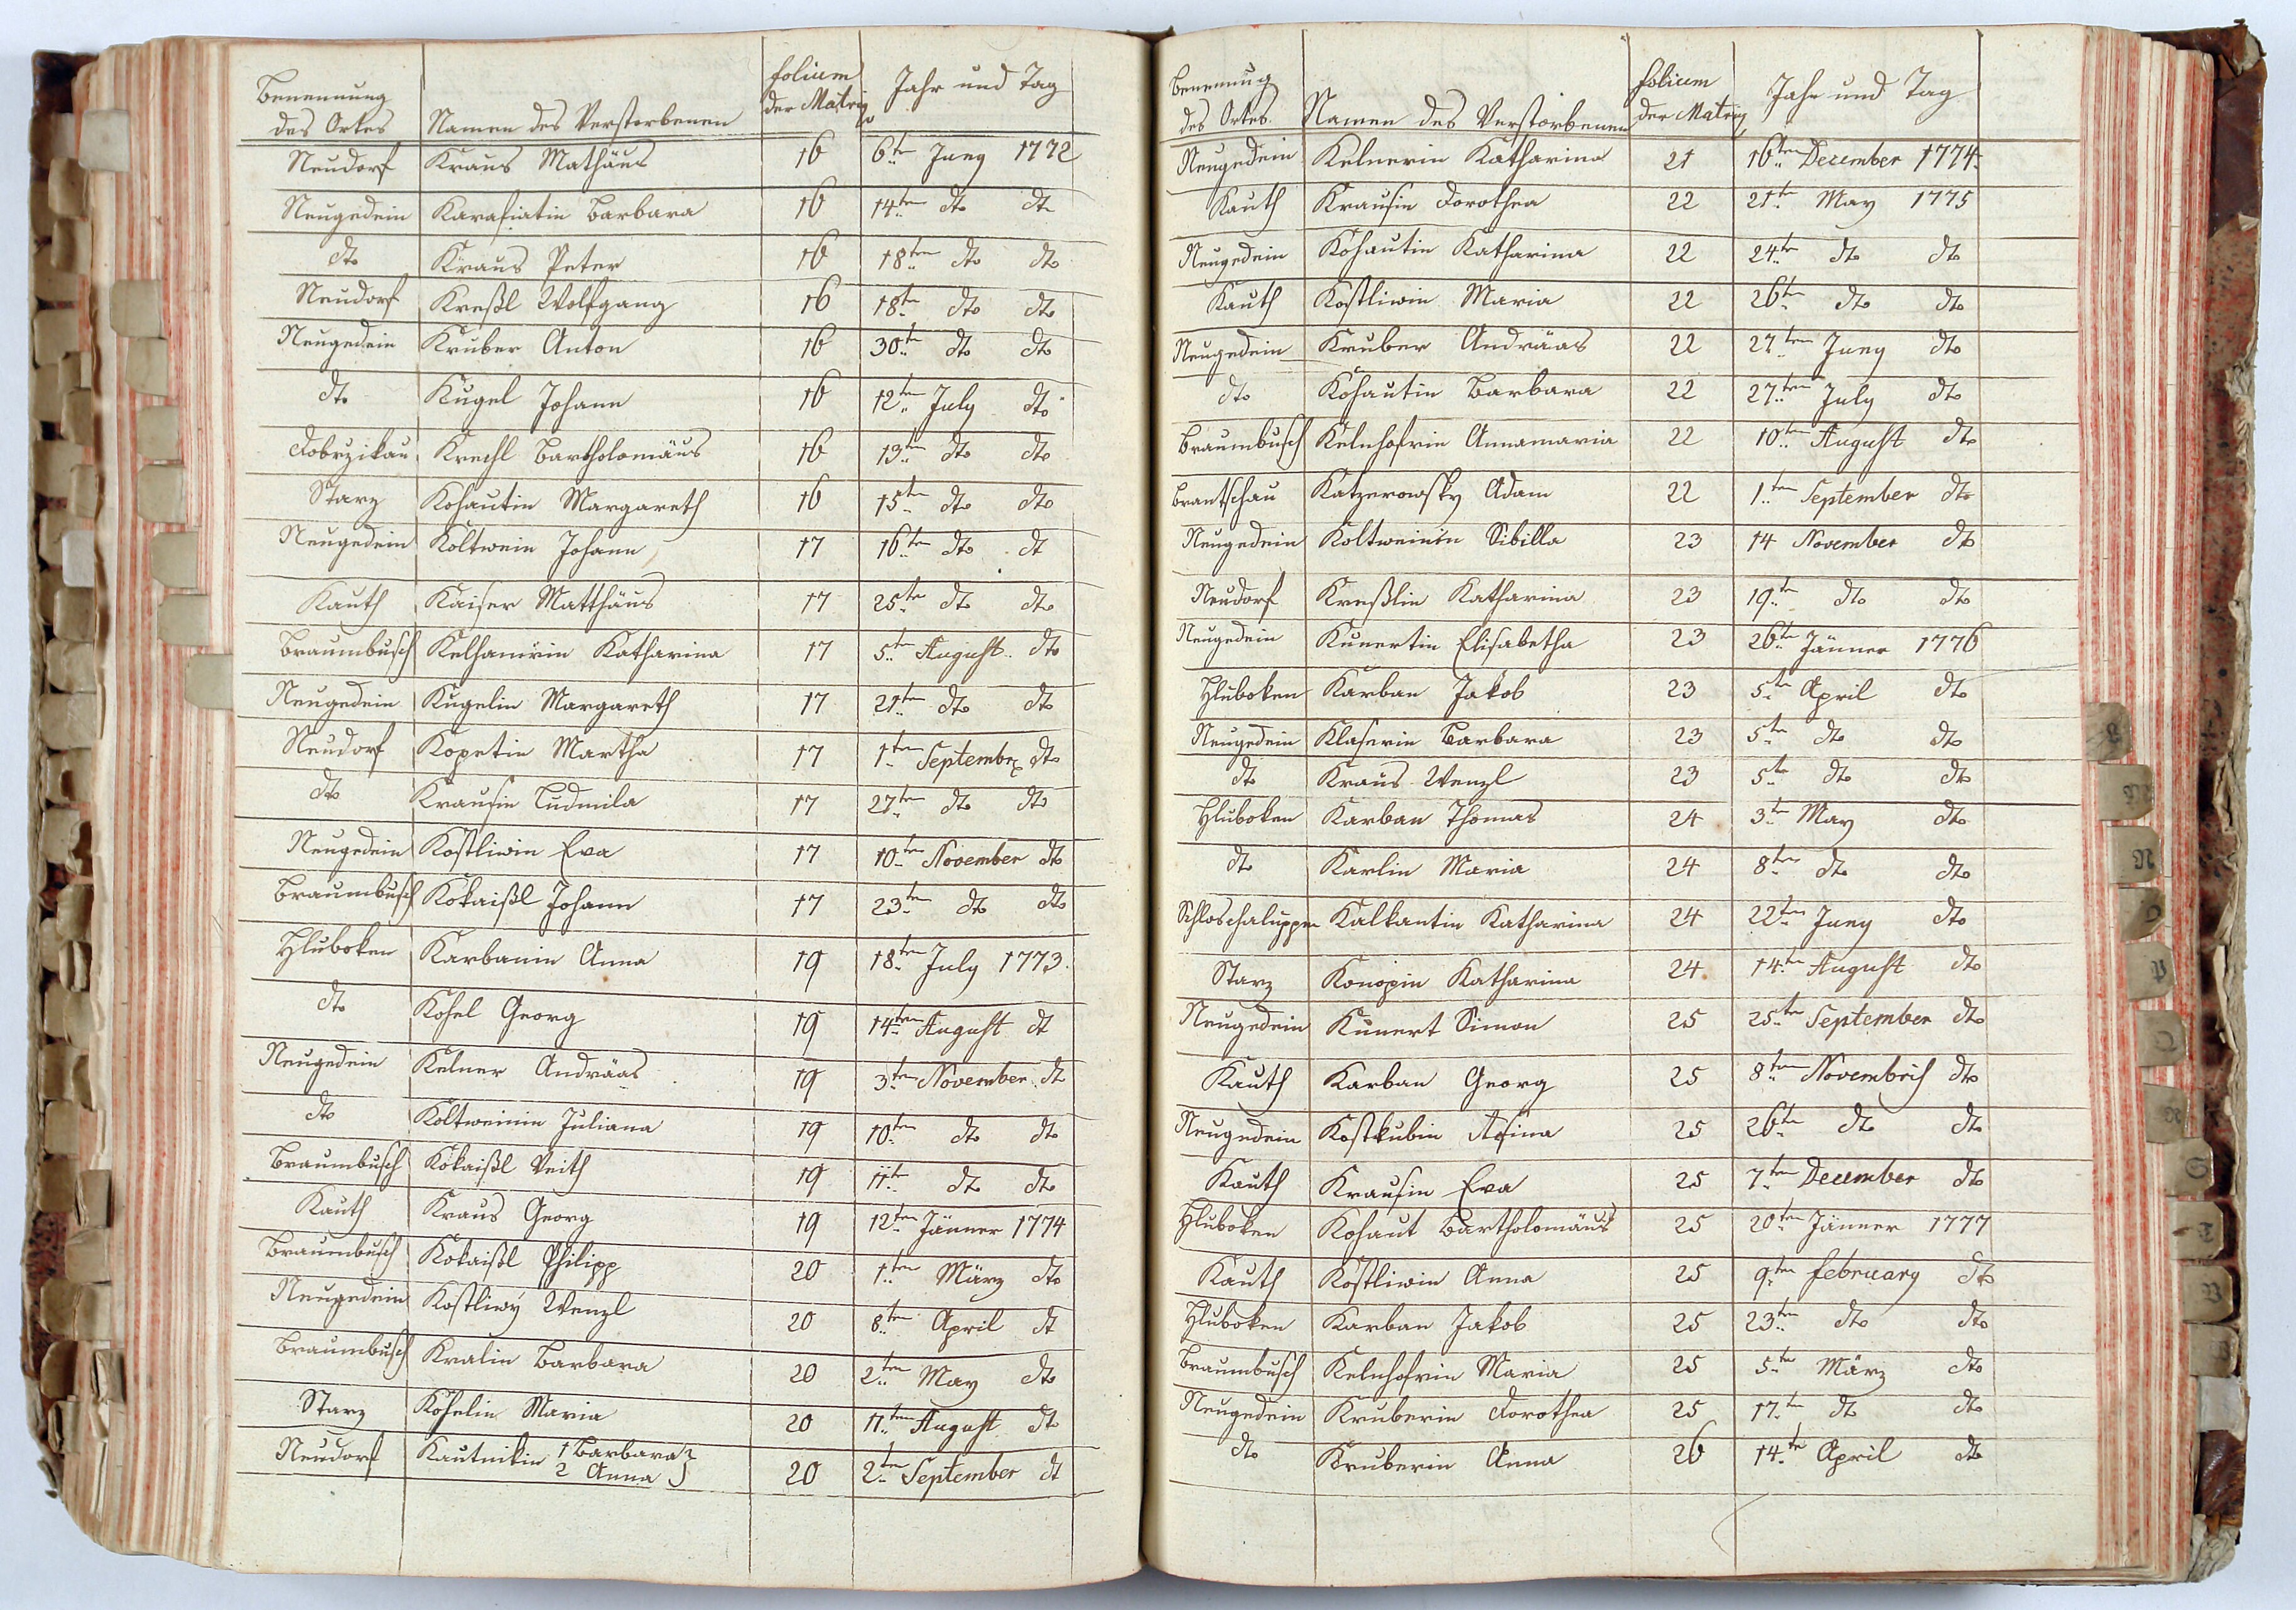 Benennung des Ortes | Namen des Verstorbenen | folium der Matrix | Jahr und Tag
Neudorf | Kraus Mathäus | 16 | 6ten Juny 1772
Neugedein | Karafiatin Barbara | 16 | 14ten dto dto
dto | Kraus Peter | 16 | 18ten dto dto
Neudorf | Kreßl Wolfgang | 16 | 18ten dto dto
Neugedein | Kruber Anton | 16 | 30ten dto dto
dto | Kugel Johann | 16 | 12ten July dto
Dobrzikau | Krechl Bartholomäus | 16 | 13ten dto dto
Starz | Kohautin Margareth | 16 | 15ten dto dto
Neugedein | Koltwein Johann | 17 | 16ten dto dt
Kauth | Kaiser Matthäus | 17 | 25ten dto dto
Braumbusch | Kelhamrin Katharina | 17 | 5ten August dto
Neugedein | Kugelin Margareth | 17 | 21ten dto dto
Neudorf | Kopetin Martha | 17 | 1ten Septembr dto
dto | Krausin Ludmila | 17 | 27ten dto dto
Neugedein | Kostliwin Eva | 17 | 10ten November dto
Braumbusch | Kokaißl Johann | 17 | 23ten dto dto
Hluboken | Karbanin Anna | 19 | 18ten July 1773.
dto | Kohel Georg | 19 | 14ten August dt
Neugedein | Kelner Andräas | 19 | 3ten November dt
dto | Koltweinin Juliana | 19 | 10ten dto dto
Braumbusch | Kokaißl Veith | 19 | 11ten dto dto
Kauth | Kraus Georg | 19 | 12ten Jänner 1774
Braumbusch | Kokaißl Philipp | 20 | 1ten März dto
Neugedein | Kostliwy Wenzl | 20 | 8ten April dt
Braumbusch | Kralin Barbara | 20 | 2ten May dto
Starz | Kohelin Maria | 20 | 11ten August dt
Neudorf | Kautnikin 1 Barbara 2 Anna | 20 | 2ten September dt
Benennug des Ortes | Namen des Verstorbenen | folium der Matrix | Jahr und Tag
Neugedein | Kelnerin Katharina | 21 | 16ten December 1774
Kauth | Krausin Dorothea | 22 | 21ten May 1775
Neugedein | Kohautin Katharina | 22 | 24ten dto dto
Kauth | Kostliwin Maria | 22 | 26ten dto dto
Neugedein | Kruber Andräas | 22 | 27ten Juny dto
dto | Kohautin Barbara | 22 | 27ten July dto
Braumbusch | Kelnhofrin Annamaria | 22 | 10ten August dto
Brantschau | Katzerowsky Adam | 22 | 1ten September dto
Neugedein | Koltweinin Sibilla | 23 | 14 November dto
Neudorf | Kreßlin Katharina | 23 | 19ten dto dto
Neugedein | Kunertin Elisabetha | 23 | 26ten Jänner 1776
Hluboken | Karban Jakob | 23 | 5ten April dto
Neugedein | Klaserin Barbara | 23 | 5ten dto dto
dto | Kraus Wenzl | 23 | 5ten dto dto
Hluboken | Karban Thomas | 24 | 3ten May dto
dto | Karlin Maria | 24 | 8ten dto dto
Schloschaluppen | Kalkantin Katharina | 24 | 22ten Juny dto
Starz | Konopin Katharina | 24 | 14ten August dto
Neugedein | Kunert Simon | 25 | 25ten September dto
Kauth | Karban Georg | 25 | 8ten Novembris dto
Neugedein | Kostkubin Rosina | 25 | 26ten dto dto
Kauth | Krausin Eva | 25 | 7ten December dto
Hluboken | Kohaut Bartholomäus | 25 | 20ten Jänner 1777
Kauth | Kostliwin Anna | 25 | 9ten february dto
Hluboken | Karban Jakob | 25 | 23ten dto dto
Braumbusch | Kelnhofrin Maria | 25 | 5ten März dto
Neugedein | Kruberin Dorothea | 25 | 17ten dto dto
dto | Kruberin Anna | 26 | 14te April dto